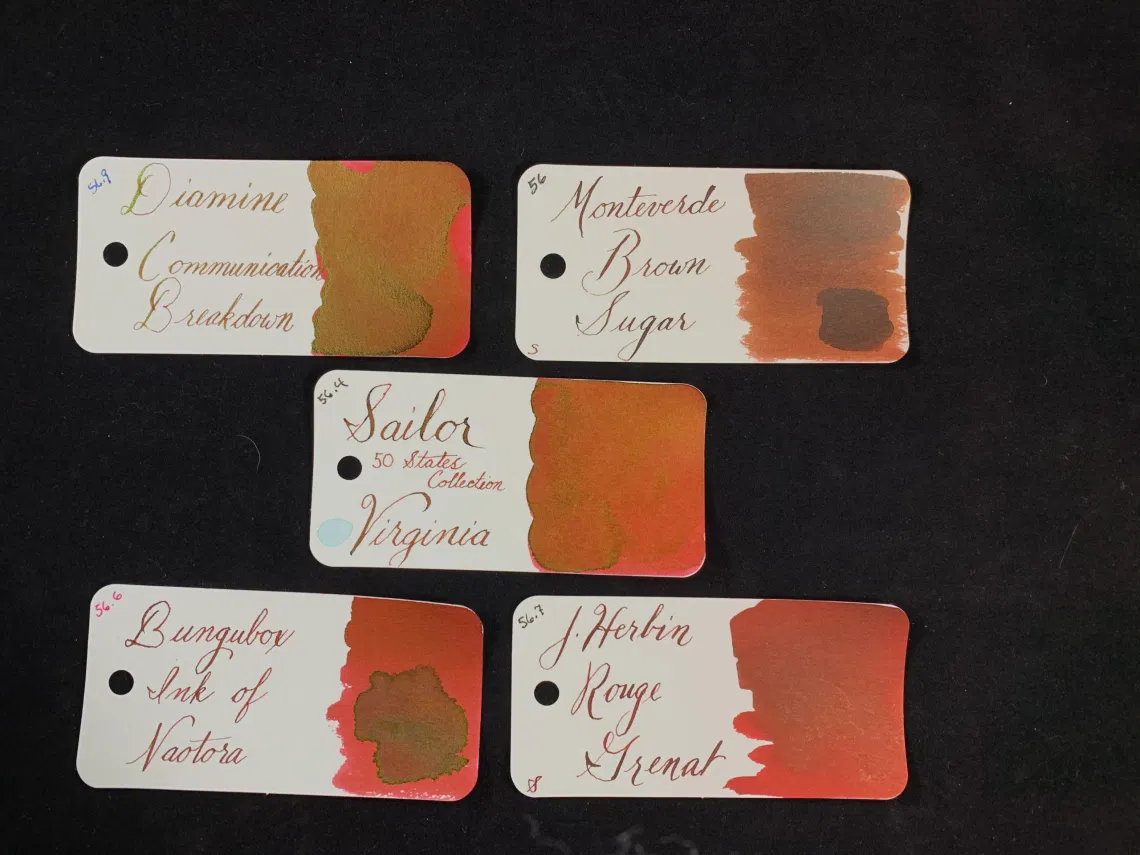 56.9
Diamine
Communication
Breakdown
56
Monteverde
Brown
Sugar
S
56.4
Sailor
50 States
Collection
Virginia
56.6
Bungubox
Ink of
Naotora
56.7
J. Herbin
Rouge
Grenat
S